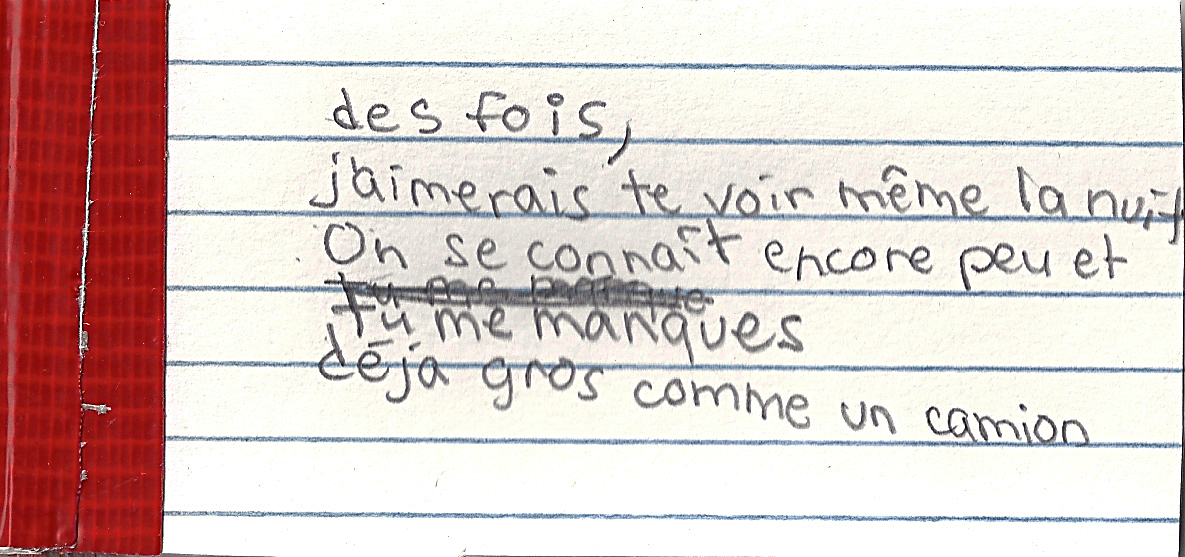 des fois,
j'aimerais te voir même la nuit
On se connaît encore peu et
tu me manque
tu me manques
déja gros comme un camion